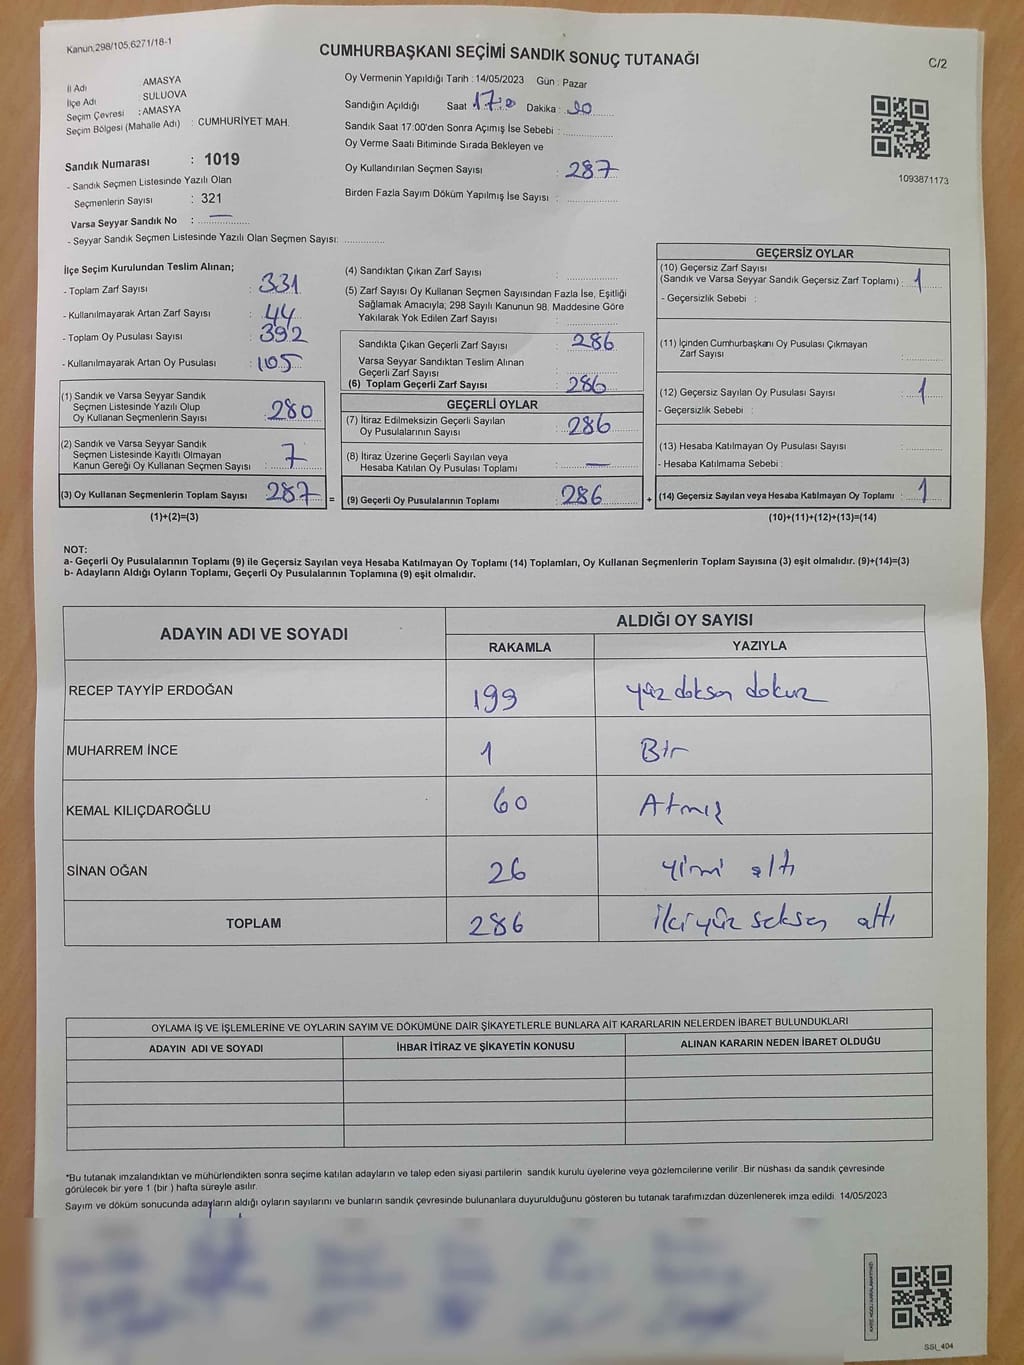 Kanun,298/105,6271/18-1
CUMHURBAŞKANI SEÇİMİ SANDIK SONUÇ TUTANAĞI
C/2
İl Adı AMASYA
İlçe Adı : SULUOVA
Seçim Çevresi : AMASYA
Seçim Bölgesi (Mahalle Adı) : CUMHURİYET MAH.
Oy Vermenin Yapıldığı Tarih : 14/05/2023 Gün : Pazar
Sandığın Açıldığı Saat Dakika :
Sandık Saat 17:00'den Sonra Açımış İse Sebebi :
Oy Verme Saati Bitiminde Sırada Bekleyen ve
Oy Kullandırılan Seçmen Sayısı : 287
Birden Fazla Sayım Döküm Yapılmış İse Sayısı :
1093871173
Sandık Numarası : 1019
- Sandık Seçmen Listesinde Yazılı Olan
Seçmenlerin Sayısı : 321
Varsa Seyyar Sandık No : —
- Seyyar Sandık Seçmen Listesinde Yazılı Olan Seçmen Sayısı:
İlçe Seçim Kurulundan Teslim Alınan;
- Toplam Zarf Sayısı : 331
- Kullanılmayarak Artan Zarf Sayısı : 44
- Toplam Oy Pusulası Sayısı : 392
- Kullanılmayarak Artan Oy Pusulası : 105
(1) Sandık ve Varsa Seyyar Sandık
Seçmen Listesinde Yazılı Olup
Oy Kullanan Seçmenlerin Sayısı : 280
(2) Sandık ve Varsa Seyyar Sandık
Seçmen Listesinde Kayıtlı Olmayan
Kanun Gereği Oy Kullanan Seçmen Sayısı : 7
(3) Oy Kullanan Seçmenlerin Toplam Sayısı : 287 =
(1)+(2)=(3)
(4) Sandıktan Çıkan Zarf Sayısı :
(5) Zarf Sayısı Oy Kullanan Seçmen Sayısından Fazla İse, Eşitliği
Sağlamak Amacıyla; 298 Sayılı Kanunun 98. Maddesine Göre
Yakılarak Yok Edilen Zarf Sayısı :
Sandıkta Çıkan Geçerli Zarf Sayısı : 286
Varsa Seyyar Sandıktan Teslim Alınan
Geçerli Zarf Sayısı :
(6) Toplam Geçerli Zarf Sayısı : 286
GEÇERLİ OYLAR
(7) İtiraz Edilmeksizin Geçerli Sayılan
Oy Pusulalarının Sayısı : 286
(8) İtiraz Üzerine Geçerli Sayılan veya
Hesaba Katılan Oy Pusulası Toplamı : —
(9) Geçerli Oy Pusulalarının Toplamı : 286 +
GEÇERSİZ OYLAR
(10) Geçersiz Zarf Sayısı
(Sandık ve Varsa Seyyar Sandık Geçersiz Zarf Toplamı) : 1
- Geçersizlik Sebebi :
(11) İçinden Cumhurbaşkanı Oy Pusulası Çıkmayan
Zarf Sayısı :
(12) Geçersiz Sayılan Oy Pusulası Sayısı : 1
- Geçersizlik Sebebi :
(13) Hesaba Katılmayan Oy Pusulası Sayısı :
- Hesaba Katılmama Sebebi :
(14) Geçersiz Sayılan veya Hesaba Katılmayan Oy Toplamı : 1
(10)+(11)+(12)+(13)=(14)
NOT:
a- Geçerli Oy Pusulalarının Toplamı (9) ile Geçersiz Sayılan veya Hesaba Katılmayan Oy Toplamı (14) Toplamları, Oy Kullanan Seçmenlerin Toplam Sayısına (3) eşit olmalıdır. (9)+(14)=(3)
b- Adayların Aldığı Oyların Toplamı, Geçerli Oy Pusulalarının Toplamına (9) eşit olmalıdır.
ADAYIN ADI VE SOYADI
ALDIĞI OY SAYISI
RAKAMLA YAZIYLA
RECEP TAYYİP ERDOĞAN 199 yüz doksan dokuz
MUHARREM İNCE 1 Bir
KEMAL KILIÇDAROĞLU 60 Atmış
SİNAN OĞAN 26 yimi altı
TOPLAM 286 İki yüz seksen altı
OYLAMA İŞ VE İŞLEMLERİNE VE OYLARIN SAYIM VE DÖKÜMÜNE DAİR ŞİKAYETLERLE BUNLARA AİT KARARLARIN NELERDEN İBARET BULUNDUKLARI
ADAYIN ADI VE SOYADI İHBAR İTİRAZ VE ŞİKAYETİN KONUSU ALINAN KARARIN NEDEN İBARET OLDUĞU
*Bu tutanak imzalandıktan ve mühürlendikten sonra seçime katılan adayların ve talep eden siyasi partilerin sandık kurulu üyelerine veya gözlemcilerine verilir. Bir nüshası da sandık çevresinde
görülecek bir yere 1 (bir ) hafta süreyle asılır.
Sayım ve döküm sonucunda adayların aldığı oyların sayılarını ve bunların sandık çevresinde bulunanlara duyurulduğunu gösteren bu tutanak tarafımızdan düzenlenerek imza edildi. 14/05/2023
SSI_404